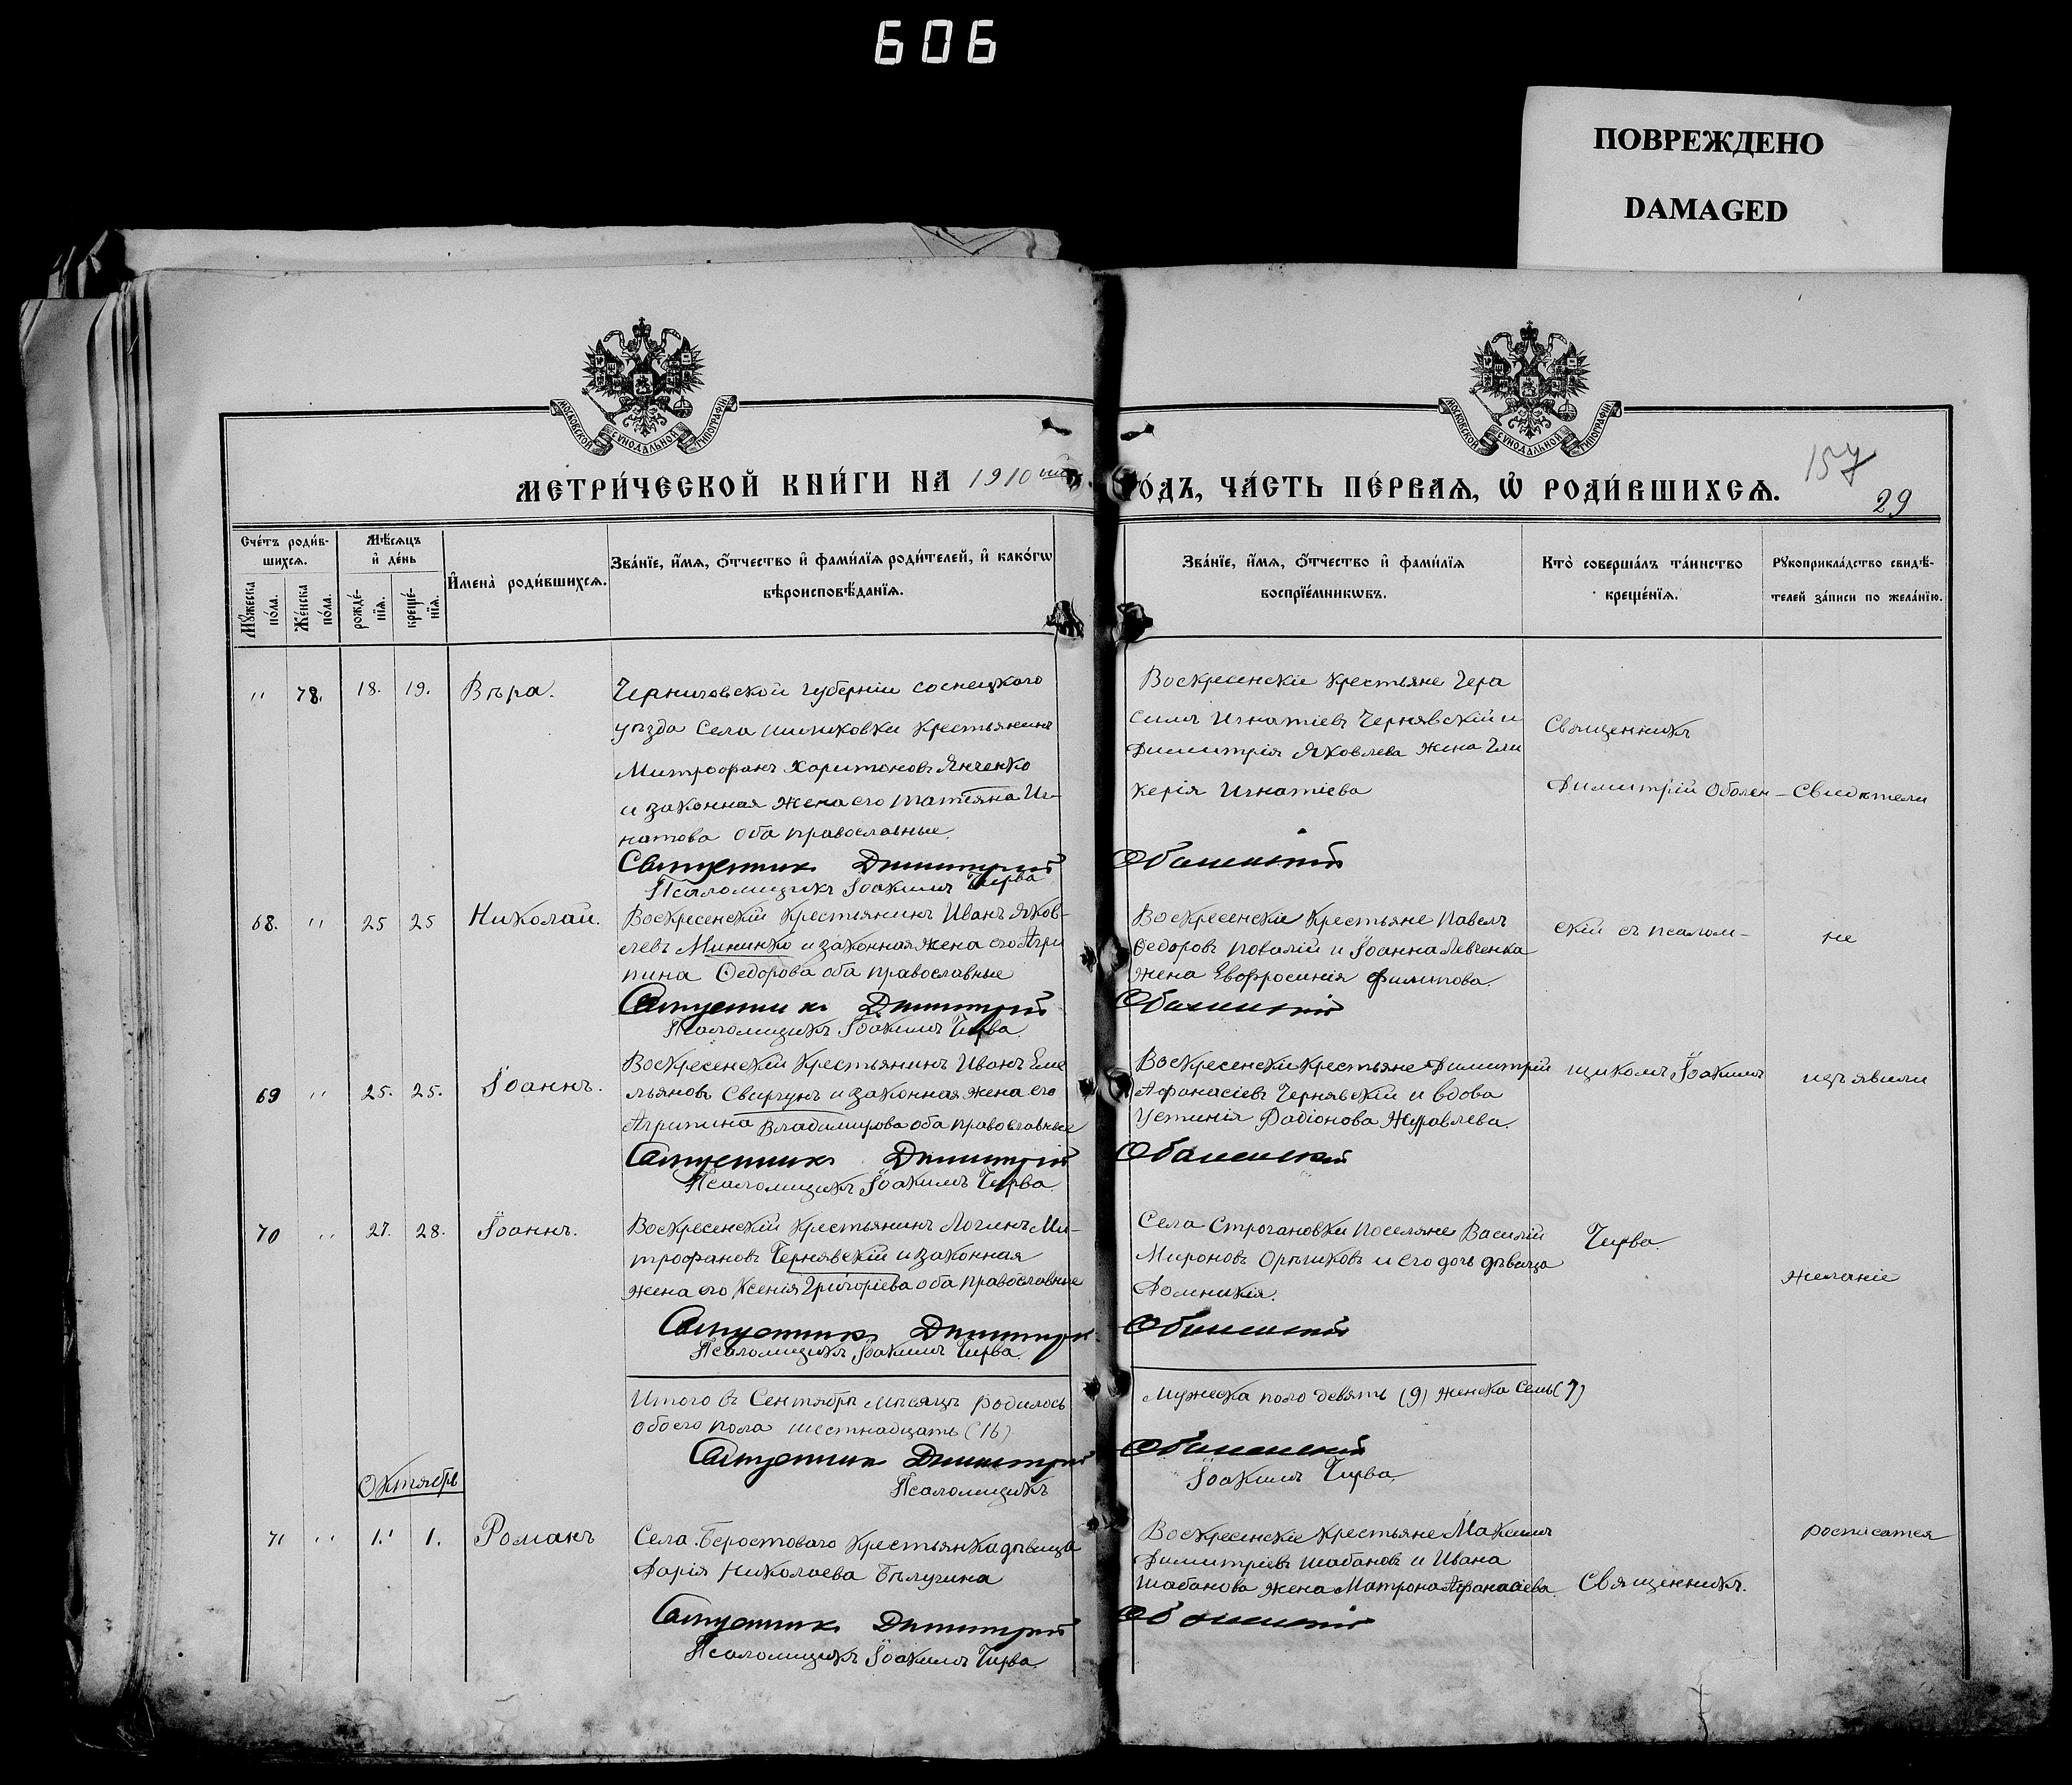 606
ПОВРЕЖДЕНО
DAMAGED
МОСКОВСКОЙ СѴНОДАЛЬНОЙ ТИПОГРАФІИ
МОСКОВСКОЙ СѴНОДАЛЬНОЙ ТИПОГРАФІИ
МЕТРИ́ЧЕСКОЙ КНИ́ГИ НА 1910 ый
О́ДЪ, ЧА́СТЬ ПЕ́РВАѦ, Ѡ҆ РОДИ́ВШИХСѦ.
157
29
Сче́тъ роди́в-
шихсѧ.
Мꙋ́жеска по́ла.
Же́нска по́ла.
Мѣ́сѧцъ
и҆ де́нь
рожде́-
нїѧ.
креще́-
нїѧ.
И҆мена̀ роди́вшихсѧ.
Зва́нїе, и҆́мѧ, ѻ҆́тчество и҆ фами́лїѧ роди́телей, и҆ како́гѡ
вѣроисповѣ́данїѧ.
Зва́нїе, и҆́мѧ, ѻ҆́тчество и҆ фами́лїѧ
воспрїе́мникѡвъ.
Кто̀ соверша́лъ та́инство
креще́нїѧ.
Рꙋкоприкла́дство свидѣ́-
телей за́писи по жела́нїю.
" 78. 18. 19. Вѣра.
Черниговской губерніи соснецкого
уѣзда Села Крестьянинъ
Митрофанъ Харитоновъ Янченко
и законная жена его Татіяна Иг-
натова оба православные.
Священникъ Димитрій
Псаломщикъ Іоакимъ Чирва
Воскресенскіе крестьяне Гера
симъ Игнатіевъ Чернявскій и
Димитрія Яковлева жена Гли
керія Игнатіева
Оболенскій
Священникъ
Димитрій Оболен-
Свидѣтели
68. " 25 25 Николай.
Воскресенскій Крестіянинъ Иванъ Яков-
левъ Мининко и законная жена его Агри
пина Ѳедорова оба православные
Священникъ Димитрій
Псаломщикъ Іоакимъ Чирва
Воскресенскіе Крестьяне Павелъ
Ѳедоровъ Повалій и Іоанна Левченка
жена Евфросинія Филипова.
Оболенскій
скій съ псалом-
не
69 " 25. 25. Іоаннъ.
Воскресенскій Крестьянинъ Иванъ Еме
льяновъ Свиргунъ и законная жена его
Агрипина Владимирова оба православные
Священникъ Димитрій
Псаломщикъ Іоакимъ Чирва
Воскресенскіе крестьяне Димитрій
Афанасіевъ Чернявскій и вдова
Устинія Радіонова Журавлева.
Оболенскій
щикомъ Іоакимъ
изъявили
70 " 27. 28. Іоаннъ.
Воскресенскій Крестьянинъ Логинъ Ми-
трофановъ Чернявскій и законная
жена его Ксенія Григоріева оба православные
Священникъ Димитрій
Псаломщикъ Іоакимъ Чирва.
Села Строгановки поселяне Василій
Мироновъ Орѣшковъ и его дочь дѣвица
Домникія.
Оболенскій
Чирва.
желаніе
Итого въ Сентябрѣ мѣсяцѣ родилось
обоего пола шестнадцать (16)
Священникъ Димитрій
Псаломщикъ
Мужеска поло девять (9) женска семь (7)
Оболенскій
Іоакимъ Чирва.
Октябрь
71 " 1. 1. Романъ
Села Берестоваго Крестьянка дѣвица
Дарія Николаева Бѣлугина
Священникъ Димитрій
Псаломщикъ Іоакимъ Чирва.
Воскресенскіе крестьяне Максимъ
Димитріевъ Шабановъ и Ивана
Шабанова жена Матрона Афанасіева
Оболенскій
Священникъ.
росписатся